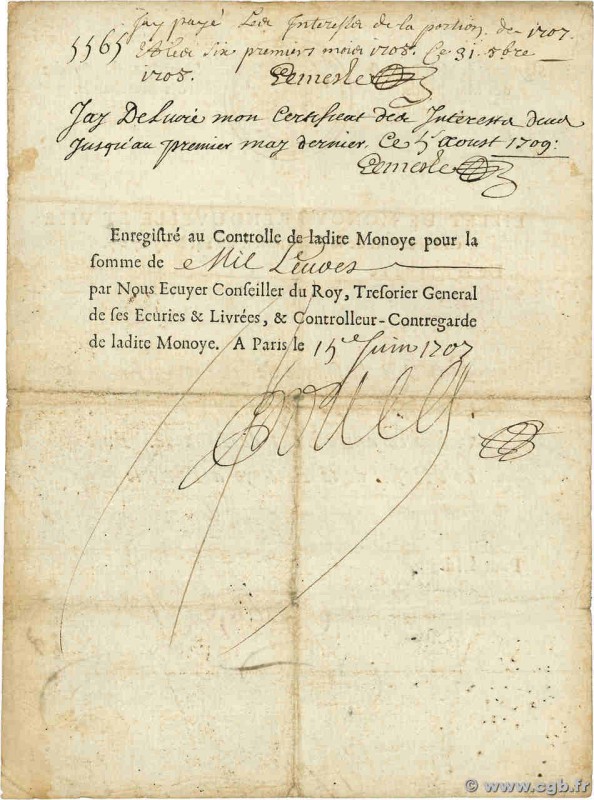 Jay payé Les Interests de la portion de 1707.
5565 et des six premiers mois 1708. Ce 31. 8bre
1708. Lemerle
Jay Delivré mon Certificat des Interests deus
Jusqu'au premier may dernier. Ce 5e aoust 1709:
Lemerle
Enregistré au Controlle de ladite Monoye pour la
somme de Mil Livres
par Nous Ecuyer Conseiller du Roy, Tresorier General
de ses Ecuries & Livrées, & Controlleur-Contregarde
de ladite Monoye. A Paris le 15e Juin 1707
© www.cgb.fr